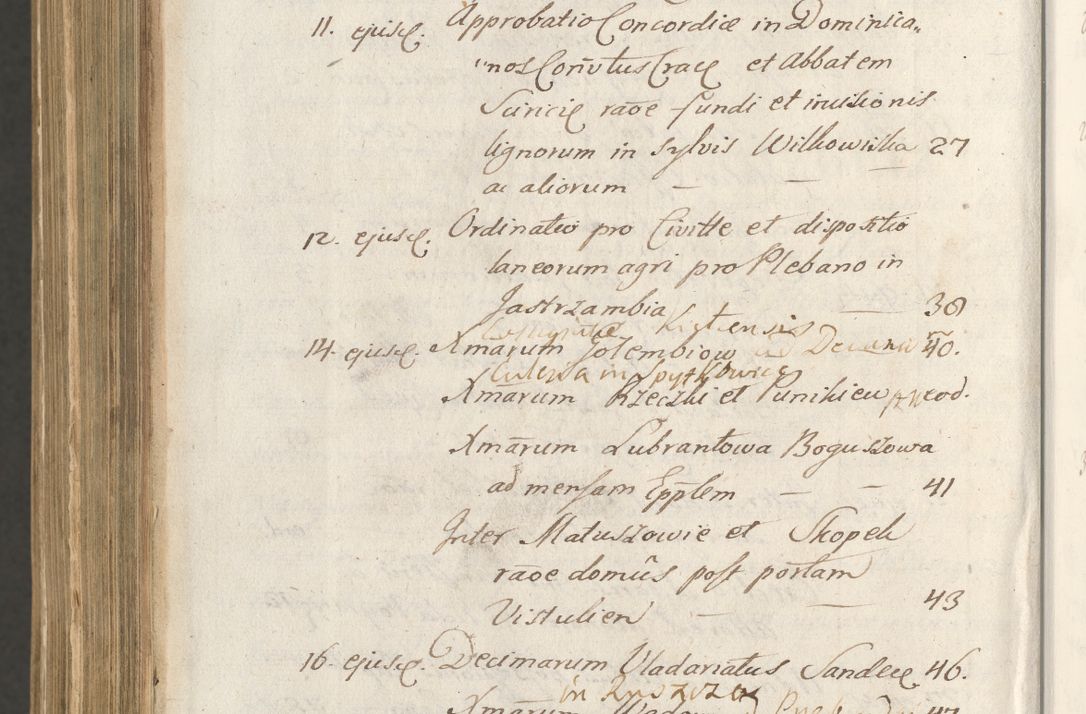 11. ejusd. Approbatio Concordiæ in Dominica„
"nos Conv̄tus Crac̄ et Abbatem
Sciricię raōe fundi et incisionis
lignorum in sylvis Wilkowiska 27
ac aliorum — — —
12. ejusd. Ordinatio pro Civitte et dispositio
laneorum agri pro Plebano in
Jastrzambia — 38
Kięt ensis
14. ejusd. Xmarum Gołembiow ad Decanū 40.
in Spytkowice
Xmārum Rzeczki et Punikiew eod.
Xmārum Lubrantowa Boguszowa
ad mensam Epp̄lem — — 41
Inter Matuszowie et Skopek
raōe domûs post portam
Vistulien — — 43
16. ejusd. Decimarum Vladariatus Sandec. 46.
in Ruszcza
Xmārum 47